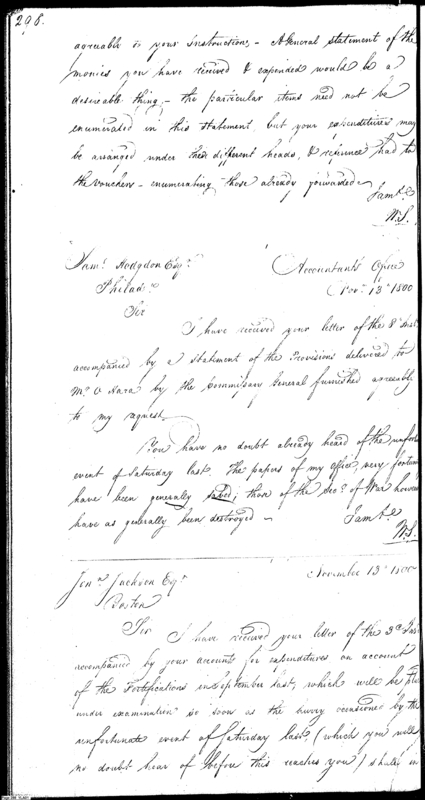 298.
agreeable to your instructions, - A General statement of the
monies you have received & expended would be a
desireable thing, - the particular items need not be
enumerated in this statement, but your expenditures may
be arranged under their different heads, & reference had to
the vouchers - enumerating those already forwarded -
I am &c
W.S.
Saml. Hodgdon Esqr.
Accountants Office
Philada.
Novr. 13th 1800
Sir
I have received your letter of the 8th Inst.
accompanied by a statement of the Provisions delivered to
Mr. O Hara by the Commissary General furnished agreeably
to my request.
You have no doubt already heard of the unfort
event of Saturday last. The papers of my office, very fortun
have been generally saved; those of the Secy. of War howeve
have as generally been destroyed -
I am &c
W.S.
Jona. Jackson Esqr.
November 13th 1800
Boston
Sir
I have received your letter of the 3d Inst
accompanied by your accounts for expenditures on account
of the Fortifications in September last, which will be
under examination so soon as the hurry occasioned by the
unfortunate event of Saturday last (which you will
no doubt hear of before this reaches you) shall in